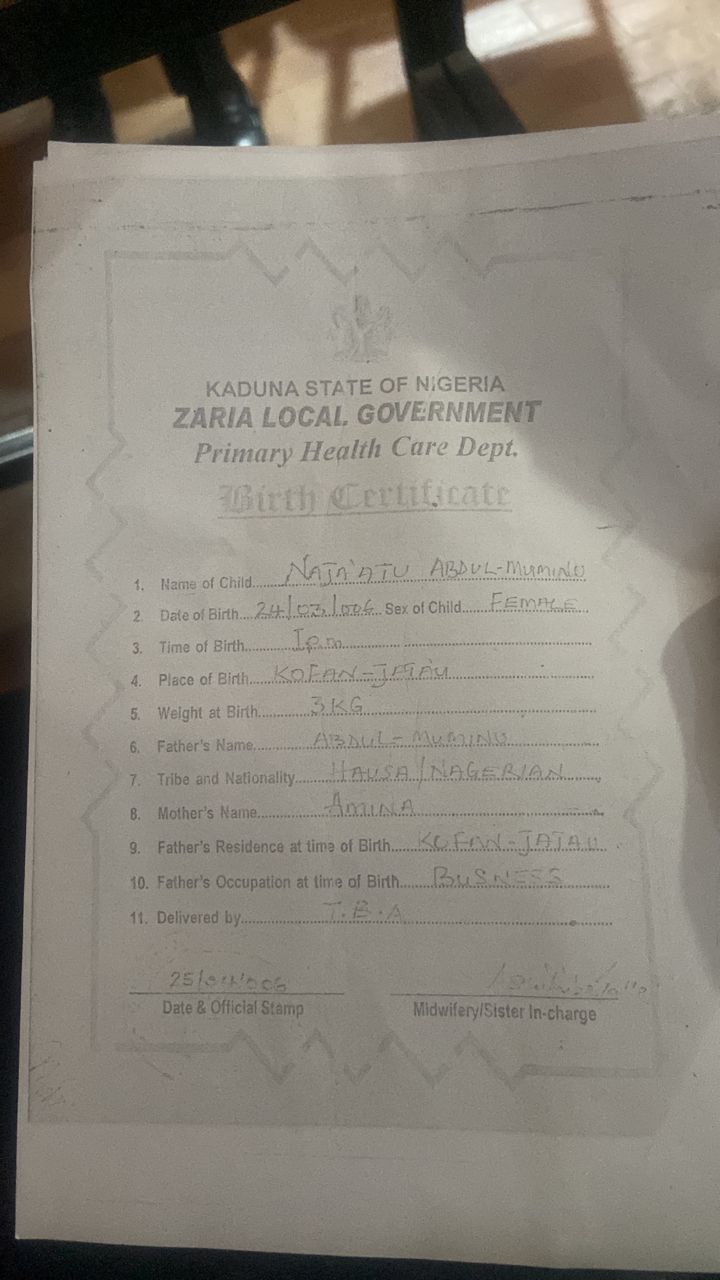 KADUNA STATE OF NIGERIA
ZARIA LOCAL GOVERNMENT
Primary Health Care Dept.
Birth Certificate
1. Name of Child......NAJA'ATU ABDUL-MUMINU
2. Date of Birth....24/03/006 Sex of Child......FEMALE
3. Time of Birth.........1pm
4. Place of Birth.....KOFAN-JATAU
5. Weight at Birth.........3KG
6. Father's Name.........ABDUL-MUMINU
7. Tribe and Nationality......HAUSA/NAGERIAN
8. Mother's Name.........AMINA
9. Father's Residence at time of Birth.....KOFAN-JATAU
10. Father's Occupation at time of Birth......BUSNESS
11. Delivered by.........T.B.A
25/04/006
Date & Official Stamp
Midwifery/Sister In-charge